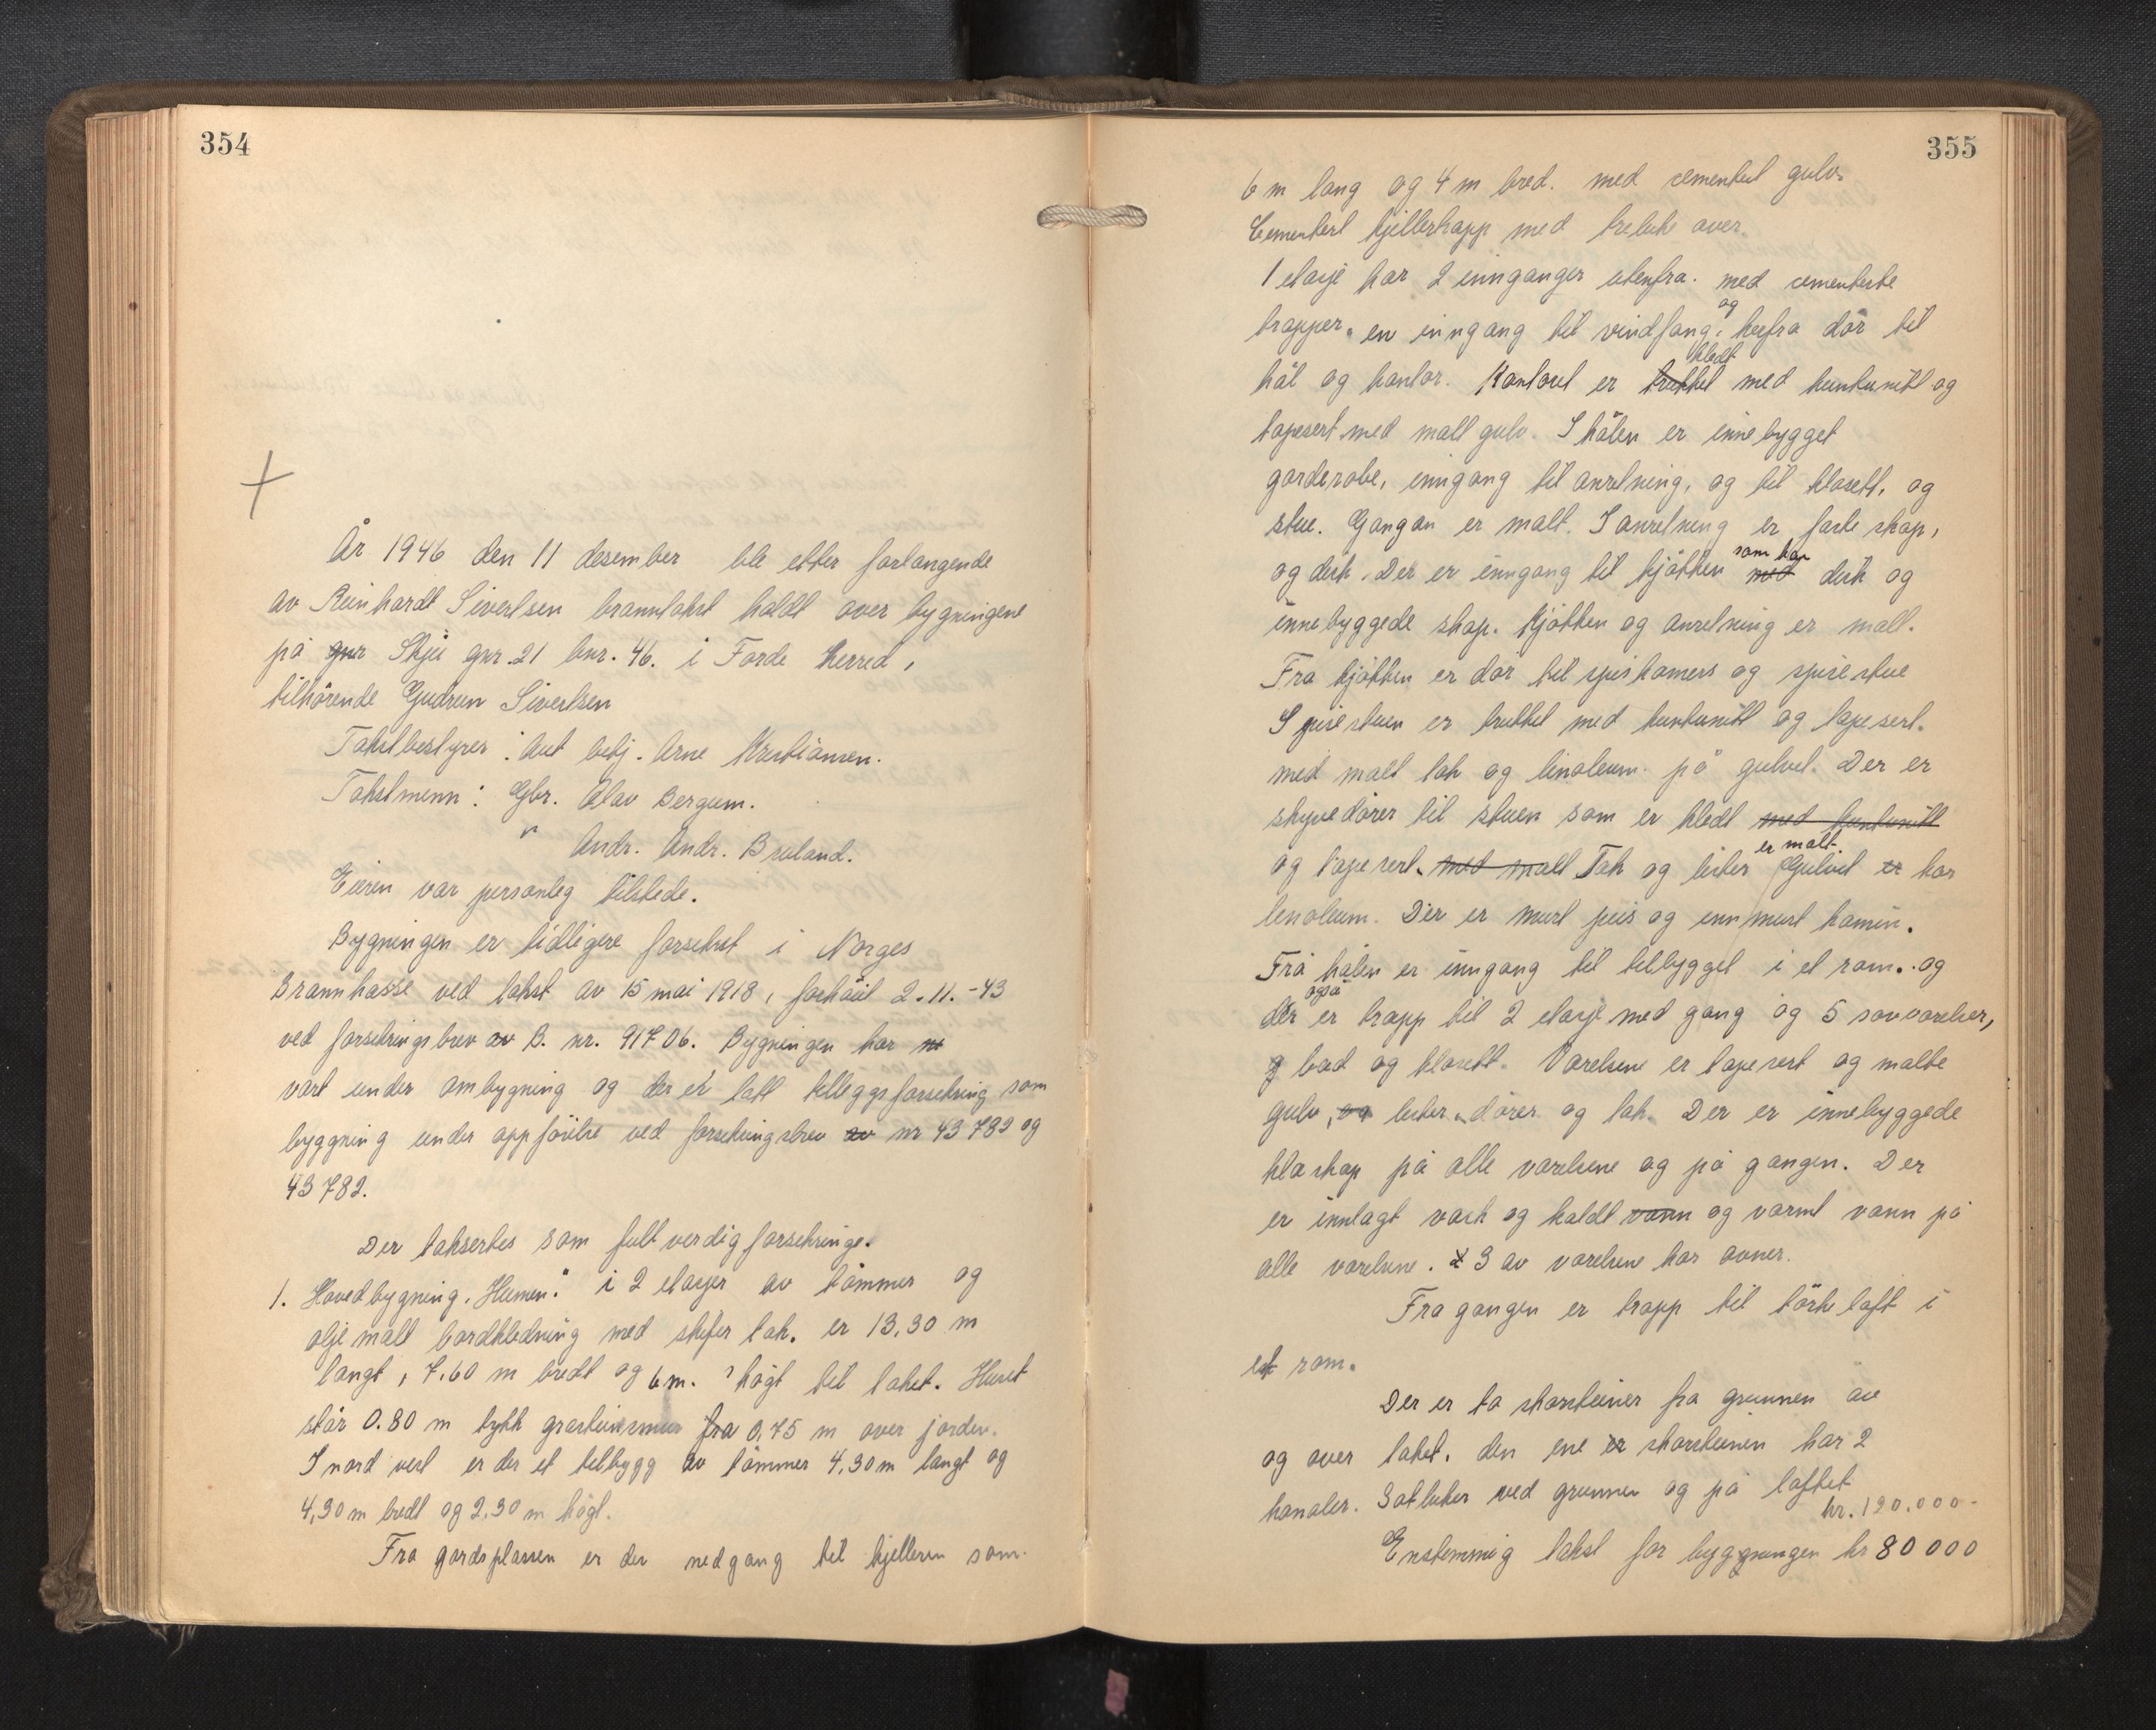 354
År 1946 den 11 desember ble etter forlangende
av Reinhardt Sivertsen branntakst holdt over bygningene
på gnr Skjei gnr. 21 bnr. 46. i Förde herred,
tilhörende Gudrun Sivertsen
Takstbestyrer: Aut betj. Arne Kristiansen.
Takstmenn: Gbr. Olav Bergum.
" Andr. Andr. Bruland.
Eieren var personleg tilstede.
Bygningen er tidligere forsikret i Norges
Brannkasse ved takst av 15 mai 1918, forhöiet 2.11.-43
ved forsikringsbrev av B. nr. 91706. Bygningen har
vært under ombygning og der er tatt tilleggsforsikring som
byggning under oppförelse ved forsikringsbrev av nr 43782 og
43782.
Der takseres som fullverdigforsikringe.
1. Hovedbygning. Heimen." i 2 etasjer av tömmer og
oljemalt bordkledning med skifer tak. er 13,30 m
langt, 7.60 m bredt og 6 m. högt til taket. Huset
står 0.80 m tykk gråsteinsmur fra 0,75 m over jorden.
I nord vest er der et tilbygg av tömmer 4,30 m langt og
4,30 m bredt og 2.30 m högt.
Fra gårdsplassen er der nedgang til kjelleren som
355
6 m lang og 4 m bred. med sementert gulv.
Cementert kjellertrapp med treluke over.
1 etasje har 2 innganger utenfra. med cementerte
og
trapper. en inngang til vindfang, herfra dör til
kledt
hål og kontor. Kontoret er trukket med huntonitt og
tapesert med malt gulv. I hålen er innebygget
garderobe, inngang til anretning, og til klosett, og
stue. Gangen er malt. I anretning er faste skap,
som har
og disk. Der er inngang til kjökken med disk og
innebyggede skap. Kjökken og anretning er malt.
Fra kjökken er dör til spiskamers og spisestue
Spisestuen er trukket med huntonitt og tapesert.
med malt tak og linoleum på gulvet. Der er
skyvedörer til stuen som er kledt med huntonitt
er malt.
og tapesert. med malt Tak og lister Gulvet er har
linoleum. Der er murt peis og innmurt kamin.
Frå hålen er inngang til tilbygget i et rom. og
også
der er trapp til 2 etasje med gang og 5 soveværelser,
g bad og klosett. Værelsene er tapesert og malte
gulv, og lister, dörer og tak. Der er innebyggede
kleskap på alle værelsene og på gangen. Der
er innlagt vask og kaldt vann og varmt vann på
alle værelsene. 3 av værelsene har ovner.
Fra gangen er trapp til törkeloft i
et rom.
Der er to skorsteiner fra grunnen av
og over taket. den ene er skorsteinen har 2
kanaler. Sotluker ved grunnen og på loftet
kr. 120.000-
Enstemmig takst for byggningen kr 80000